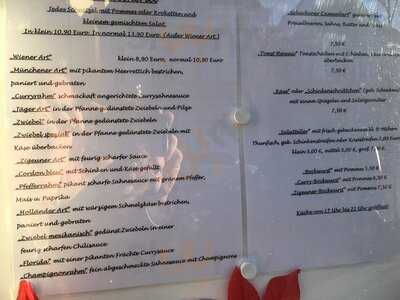 Jedes Schnitzel mit Pommes oder Kroketten und
kleinem gemischten Salat.
In klein 10,90 Euro. In normal 13,90 Euro. (Außer Wiener Art )
„Wiener Art" klein 8,90 Euro, normal 10,90
„Münchener Art" mit pikantem Meerrettich bestrichen,
paniert und gebraten
„Curryrahm" schmackhaft angerichtete Curryrahmsauce
„Jäger Art" in der Pfanne gedünstete Zwiebeln und Pilze
„Zwiebel" in der Pfanne gedünstete Zwiebeln
„Zwiebel spezial" in der Pfanne gedünstete Zwiebeln mit
Käse überbacken
„Zigeuner Art" mit feurig scharfer Sauce
„Cordon bleu" mit Schinken und Käse gefüllt
„Pfefferrahm" pikant scharfe Sahnesauce mit grünem Pfeffer,
Mais u. Paprika
„Holländer Art" mit würzigem Schmelzkäse bestrichen,
paniert und gebraten
„Zwiebel mexikanisch" gedünst.Zwiebeln in einer
feurig scharfen Chilisauce
„Florida" mit einer pikanten Früchte Currysauce
„Champignonrahm" fein abgeschmeckte Sahnesauce mit Champignons
„Gebackener Camembert"
Preiselbeeren, Sahne, Butter und
7,50 €
„Toast Hawaii" Toastscheiben mit
überbacken
7,50 €
„Käse" oder „Schinkenschnittchen" (gek. Schinken)
mit einem Spiegelei und Salatgarnitur
7,50 €
„Salatteller" mit frisch gebackenem
Thunfisch, gek. Schinkenstreifen oder
klein 5,00 €, mittel 5,50 €, groß
„Bockwurst" mit Pommes
„Curry-Bockwurst" mit Pommes 6,50 €
„Zigeuner-Bockwurst" mit Pommes 7,50 €
Küche von 17 Uhr bis 21 Uhr geöffnet!